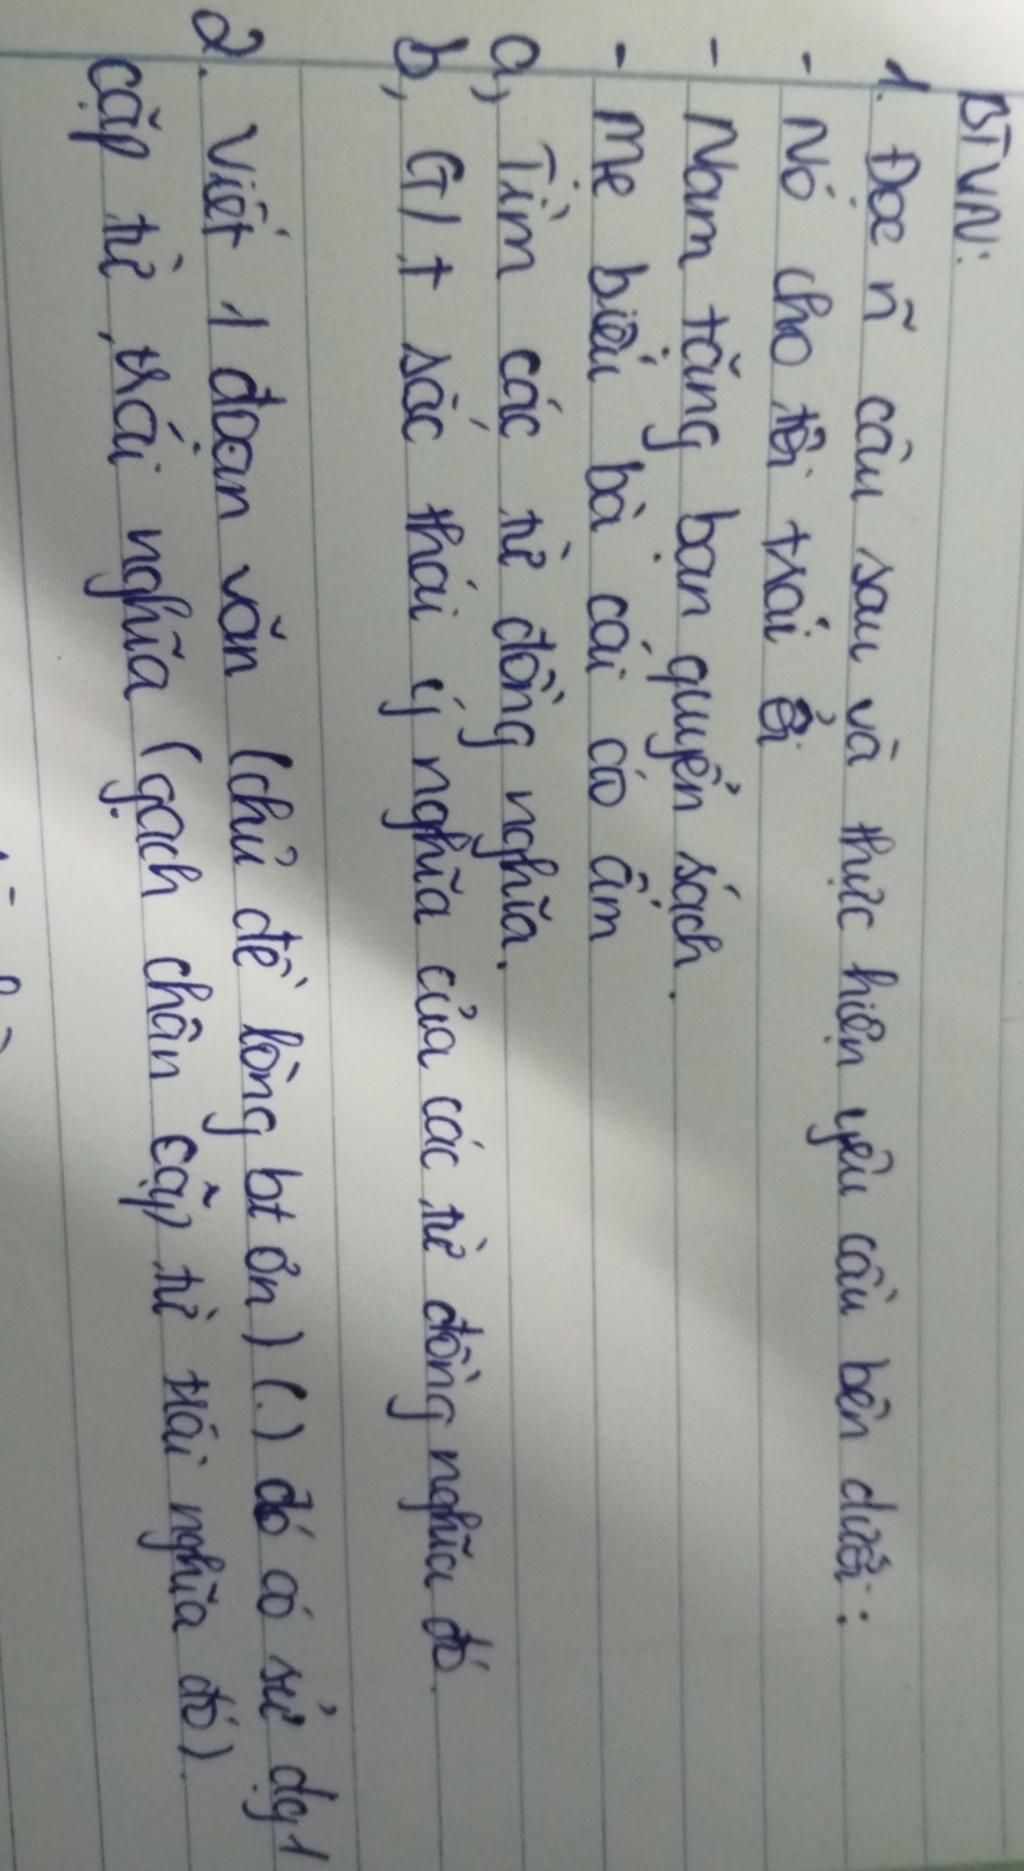 BTVN:
1. Đọc ~ câu sau và thực hiện yêu cầu bên dưới:
- Nó cho tôi trái ổi
- Nam tặng bạn quyển sách.
- Mẹ biếu bà cái áo ấm
a, Tìm các từ đồng nghĩa.
b, G/t sắc thái ý nghĩa của các từ đồng nghĩa đó.
2. Viết 1 đoạn văn (chủ đề lòng bt ơn) (.) đó có sử dg 1
cặp từ trái nghĩa (gạch chân cặp từ trái nghĩa đó).